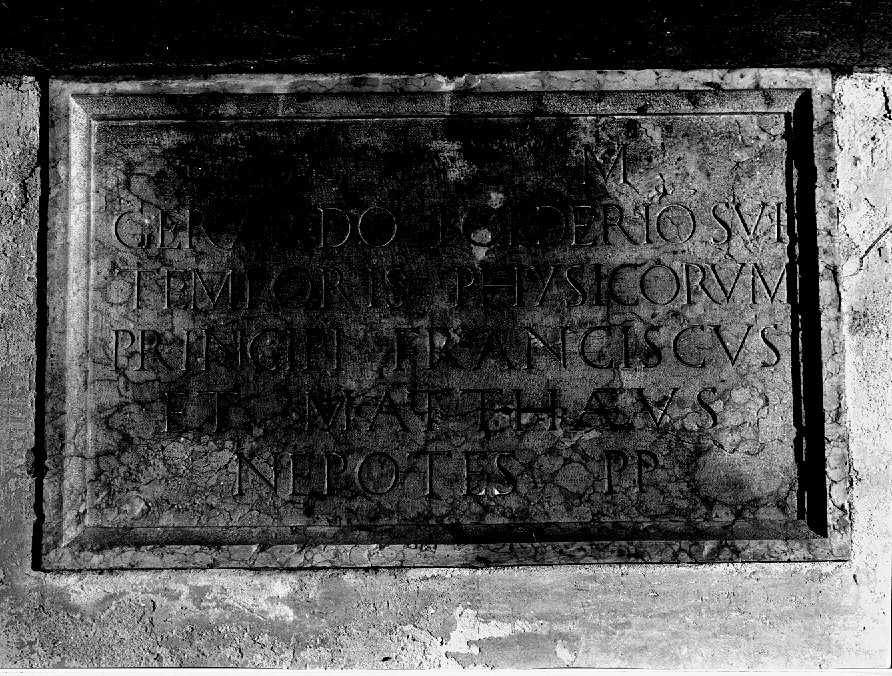 M
GERARDO BOLDERIO SVI
TEMPORIS PHYSICORVM
PRINCIPI FRANCISCVS
ET MATTHÆVS
NEPOTES PP